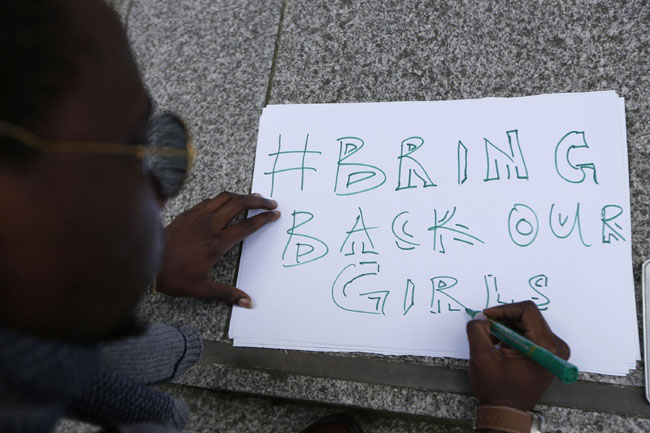 #BRING
BACK OUR
GIRLS